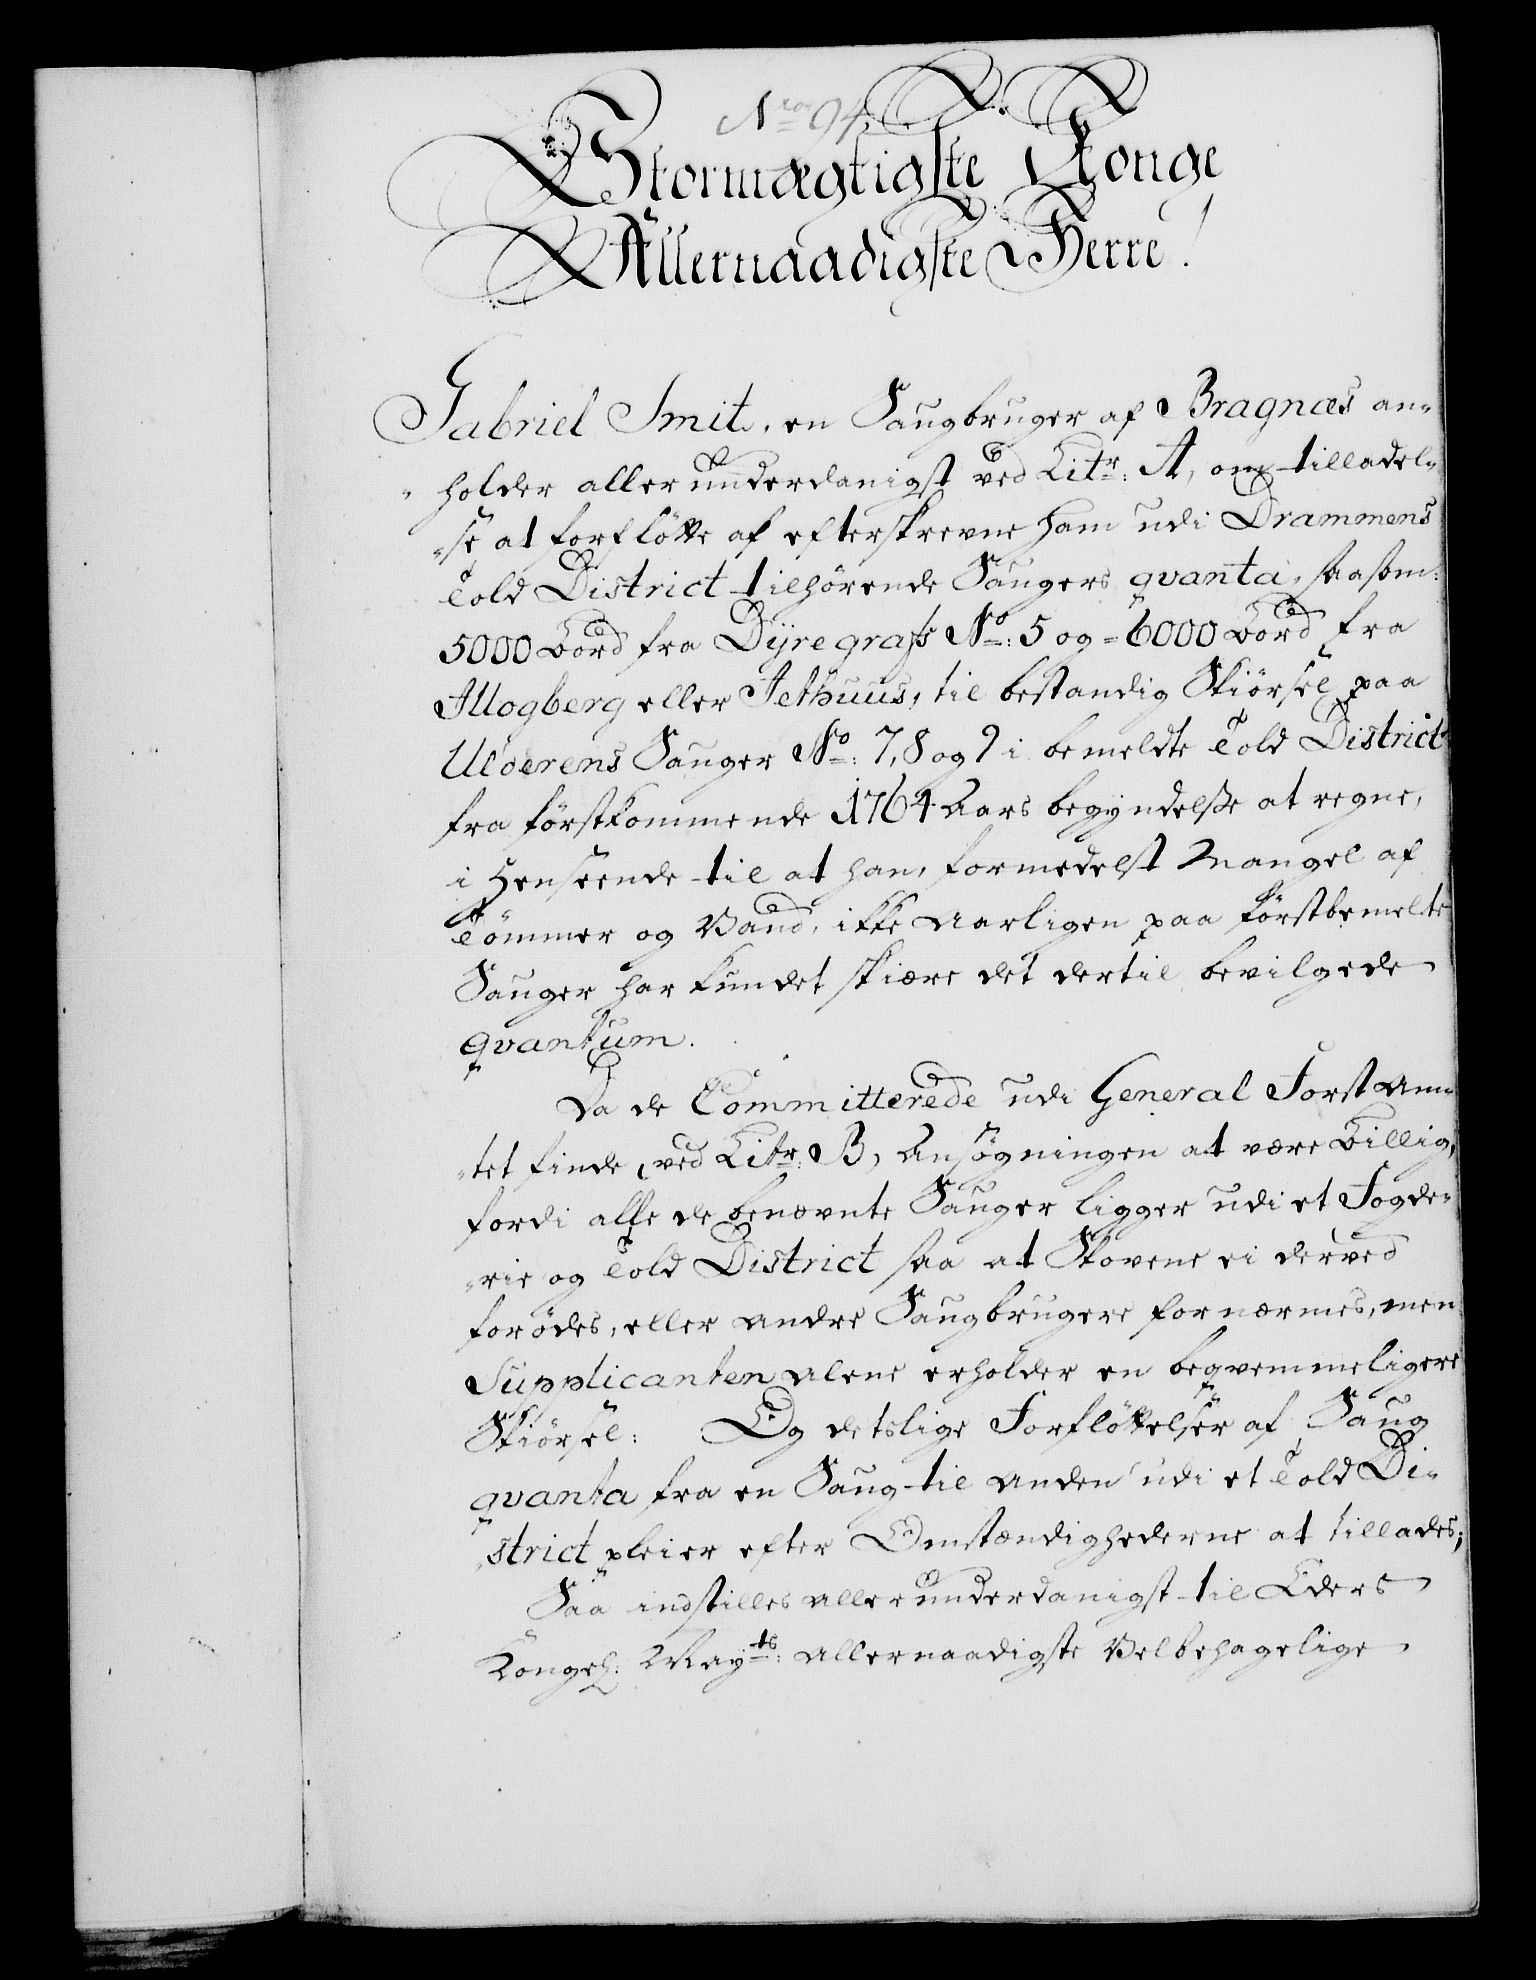 Nro 94.
Stormægtigste Konge
Allernaadigste Herre!
Gabriel Smit, en Saugbruger af Bragnæs an-
holder allerunderdanigst ved Litr: A, om tilladel-
se at forfløtte af efterskrevne ham udi Drammens
Told District tilhørende Sauger qvanta, saasom:
5000 Bord fra Dyregrafs No: 5 og 6000 Bord fra
Mogberg eller Jethuus, til bestandig Skiørsel paa
Ulverens Sauger No: 7, 8 og 9 i bemeldte Told District
fra førstkommende 1764 Aars begyndelse at regne,
i Henseende til at han, formedelst Mangel af
Tømmer og Vand, ikke aarligen paa førstbemelte
Sauger har kundet skiære det dertil bevilgede
qvantum.
Da de Committerede udi General Forst Am-
tet finde, ved Litr: B, Ansøgningen at være billig,
fordi alle de benævnte Sauger ligger udi et Fogde-
rie og Told District saa at Skovene ei derved
forødes, eller andre Saugbrugere fornærmes, men
Supplicanten alene erholder en beqvemmeligere
Skiørsel: Og detslige Forfløttelser af Saug
qvanta fra en Saug til anden udi et Told Di-
strict pleier efter Omstændighederne at tillades;
Saa indstilles allerunderdanigst til Eders
Kongel: Mayts: allernaadigste Velbehagelige